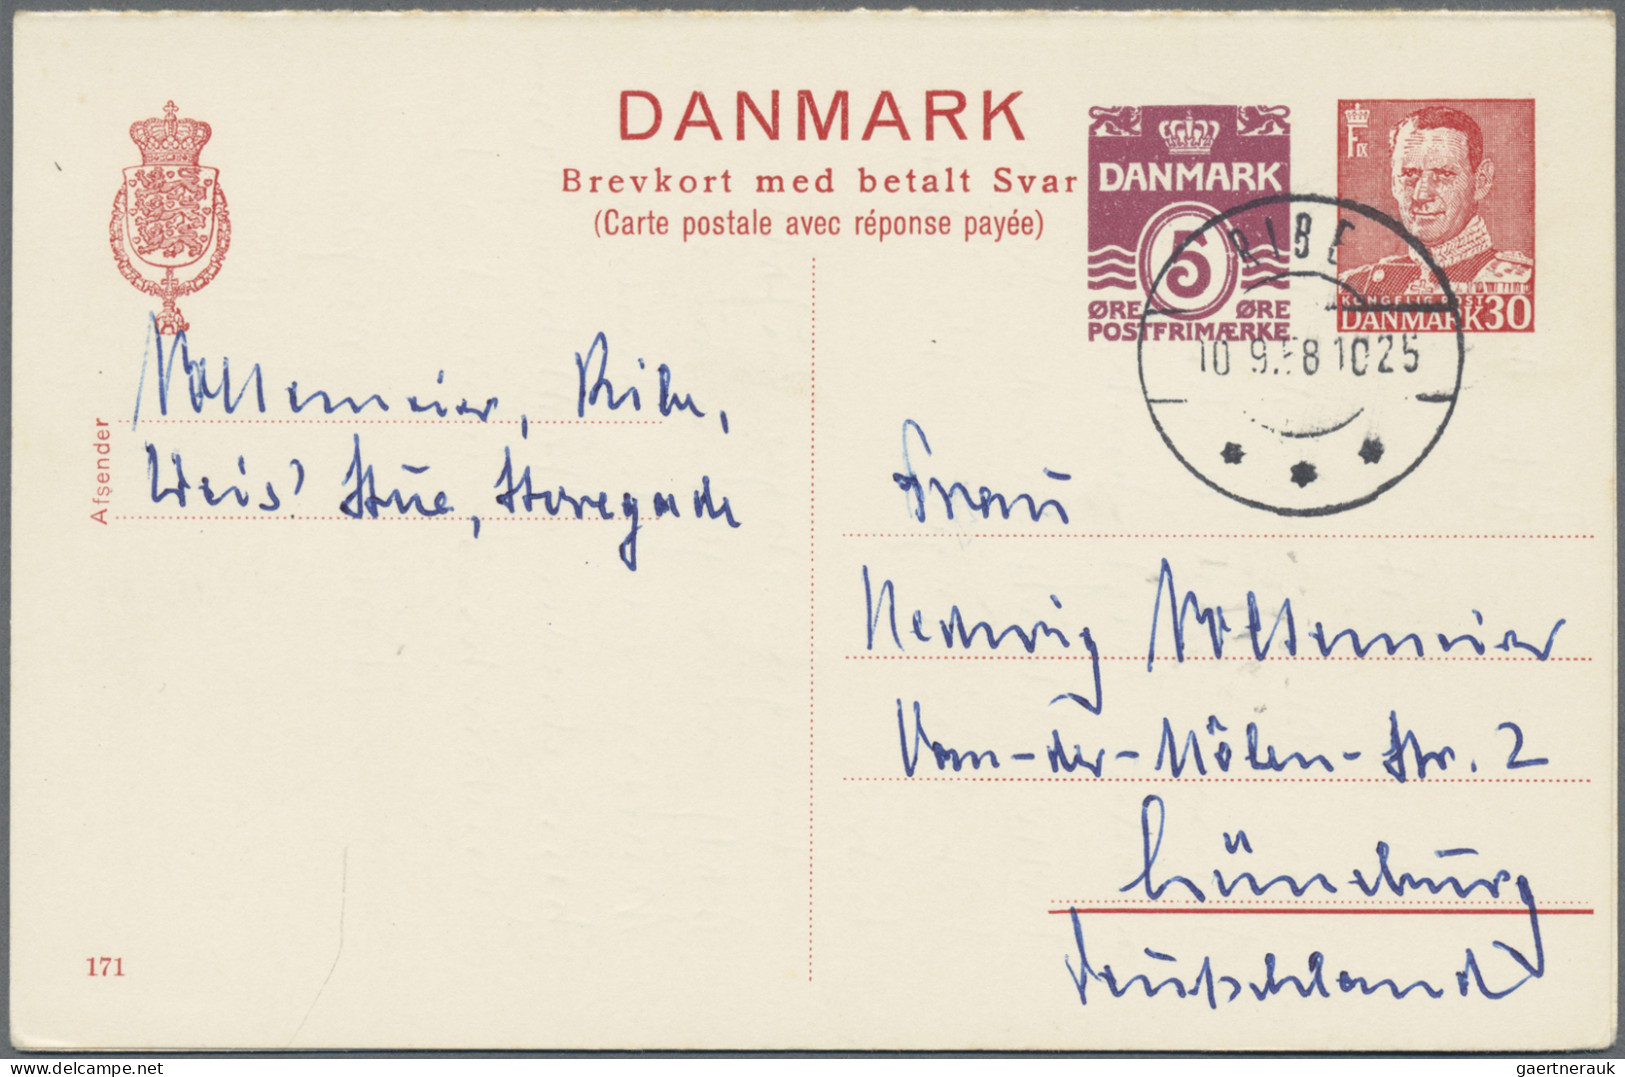 DANMARK
Brevkort med betalt Svar
(Carte postale avec réponse payée)
DANMARK
5
ØRE ØRE
POSTFRIMÆRKE
F IX
KONGELIG POST
DANMARK 30
RIBE
10 9. 58 1025
Afsender
Noltemeier, Ribe,
Weis' Stue, Storegade
Frau
Hedwig Noltemeier
Von-der-Mölen-Str. 2
Lüneburg
Deutschland
171
gaertnerauk